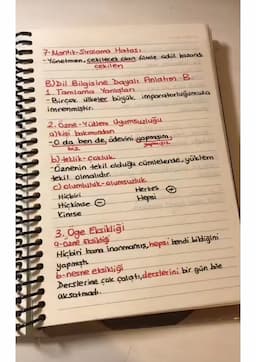 7-Mantık-Sıralama Hatası
-Yönetmen, çekilecek olan filmle ödül kazandı
çekilen
B) Dil Bilgisine Dayalı Anlatım B.
1. Tamlama Yanlışları
-Birçok ülkeler büyük imparatorluğumuza
imrenmiştir.
2. Özne-Yüklem Uyumsuzluğu
a) kişi bakımından
-O da ben de, ödevini yapmışım.
biz
b) teklik-çokluk
-Öznenin tekil olduğu cümlelerde, yüklem
tekil olmalıdır.
c) olumluluk-olumsuzluk
Hiçbiri Herkes +
Hiçkimse - Hepsi
Kimse
3. Öge Eksikliği
a-özne Eksikliği
Hiçbiri bana inanmamış, hepsi kendi bildiğini
yapmıştı.
b-nesne eksikliği
Derslerine çok çalıştı, derslerini bir gün bile
aksatmadı.